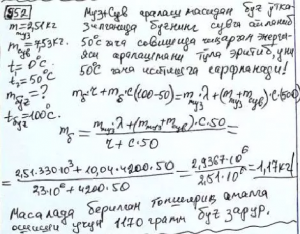 352
m=2,51кг
m=7,53кг.
t=0°C
t₂=50°C
m=?
t=100°C.
Муз+сув аралаш масадан буғ ўтка-
зилганида буғнинг сувга айланиб
50°C гача совишида чиқарган энерги-
яси аралашмани тўла эритиб, уни
50°C гача иситишга сарфланади!
m·r+m·c(100-50)=m·λ+(m+m)·c(50)
m = m·λ+(m+m)·c·50 / r+c·50 =
= 2,51·330·10³+10,04·4200·50 / 23·10⁵+4200·50 = 2,9367·10⁶ / 2,51·10⁶ = 1,17кг
Масалада берилган топшириқ амалга
ошиши учун 1170 грамм буғ зарур.